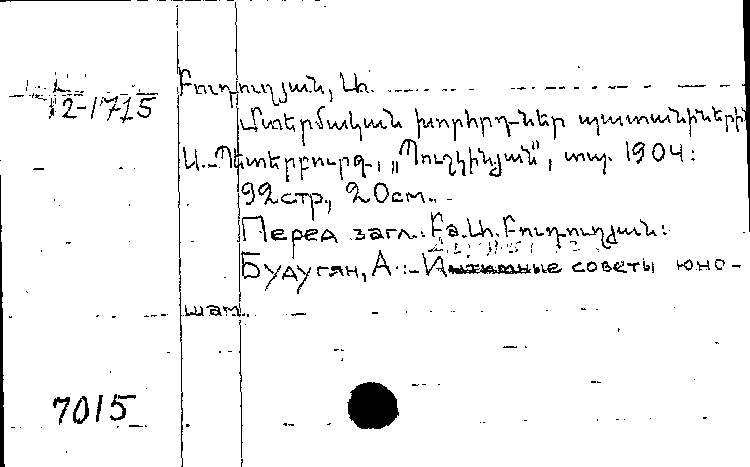 12-1715
Բուդուղյան, Ա.
Մտերմական խորհրդ-ներ պատանիներին
Ս.-Պետերբուրգ., „Պուշկինյան", տպ. 1904:
92стр., 20см..
Перед загл.: Բժ. Ա. Բուդուղյան:
Будугян, А.:- Интимные советы юно-
шам.
7015